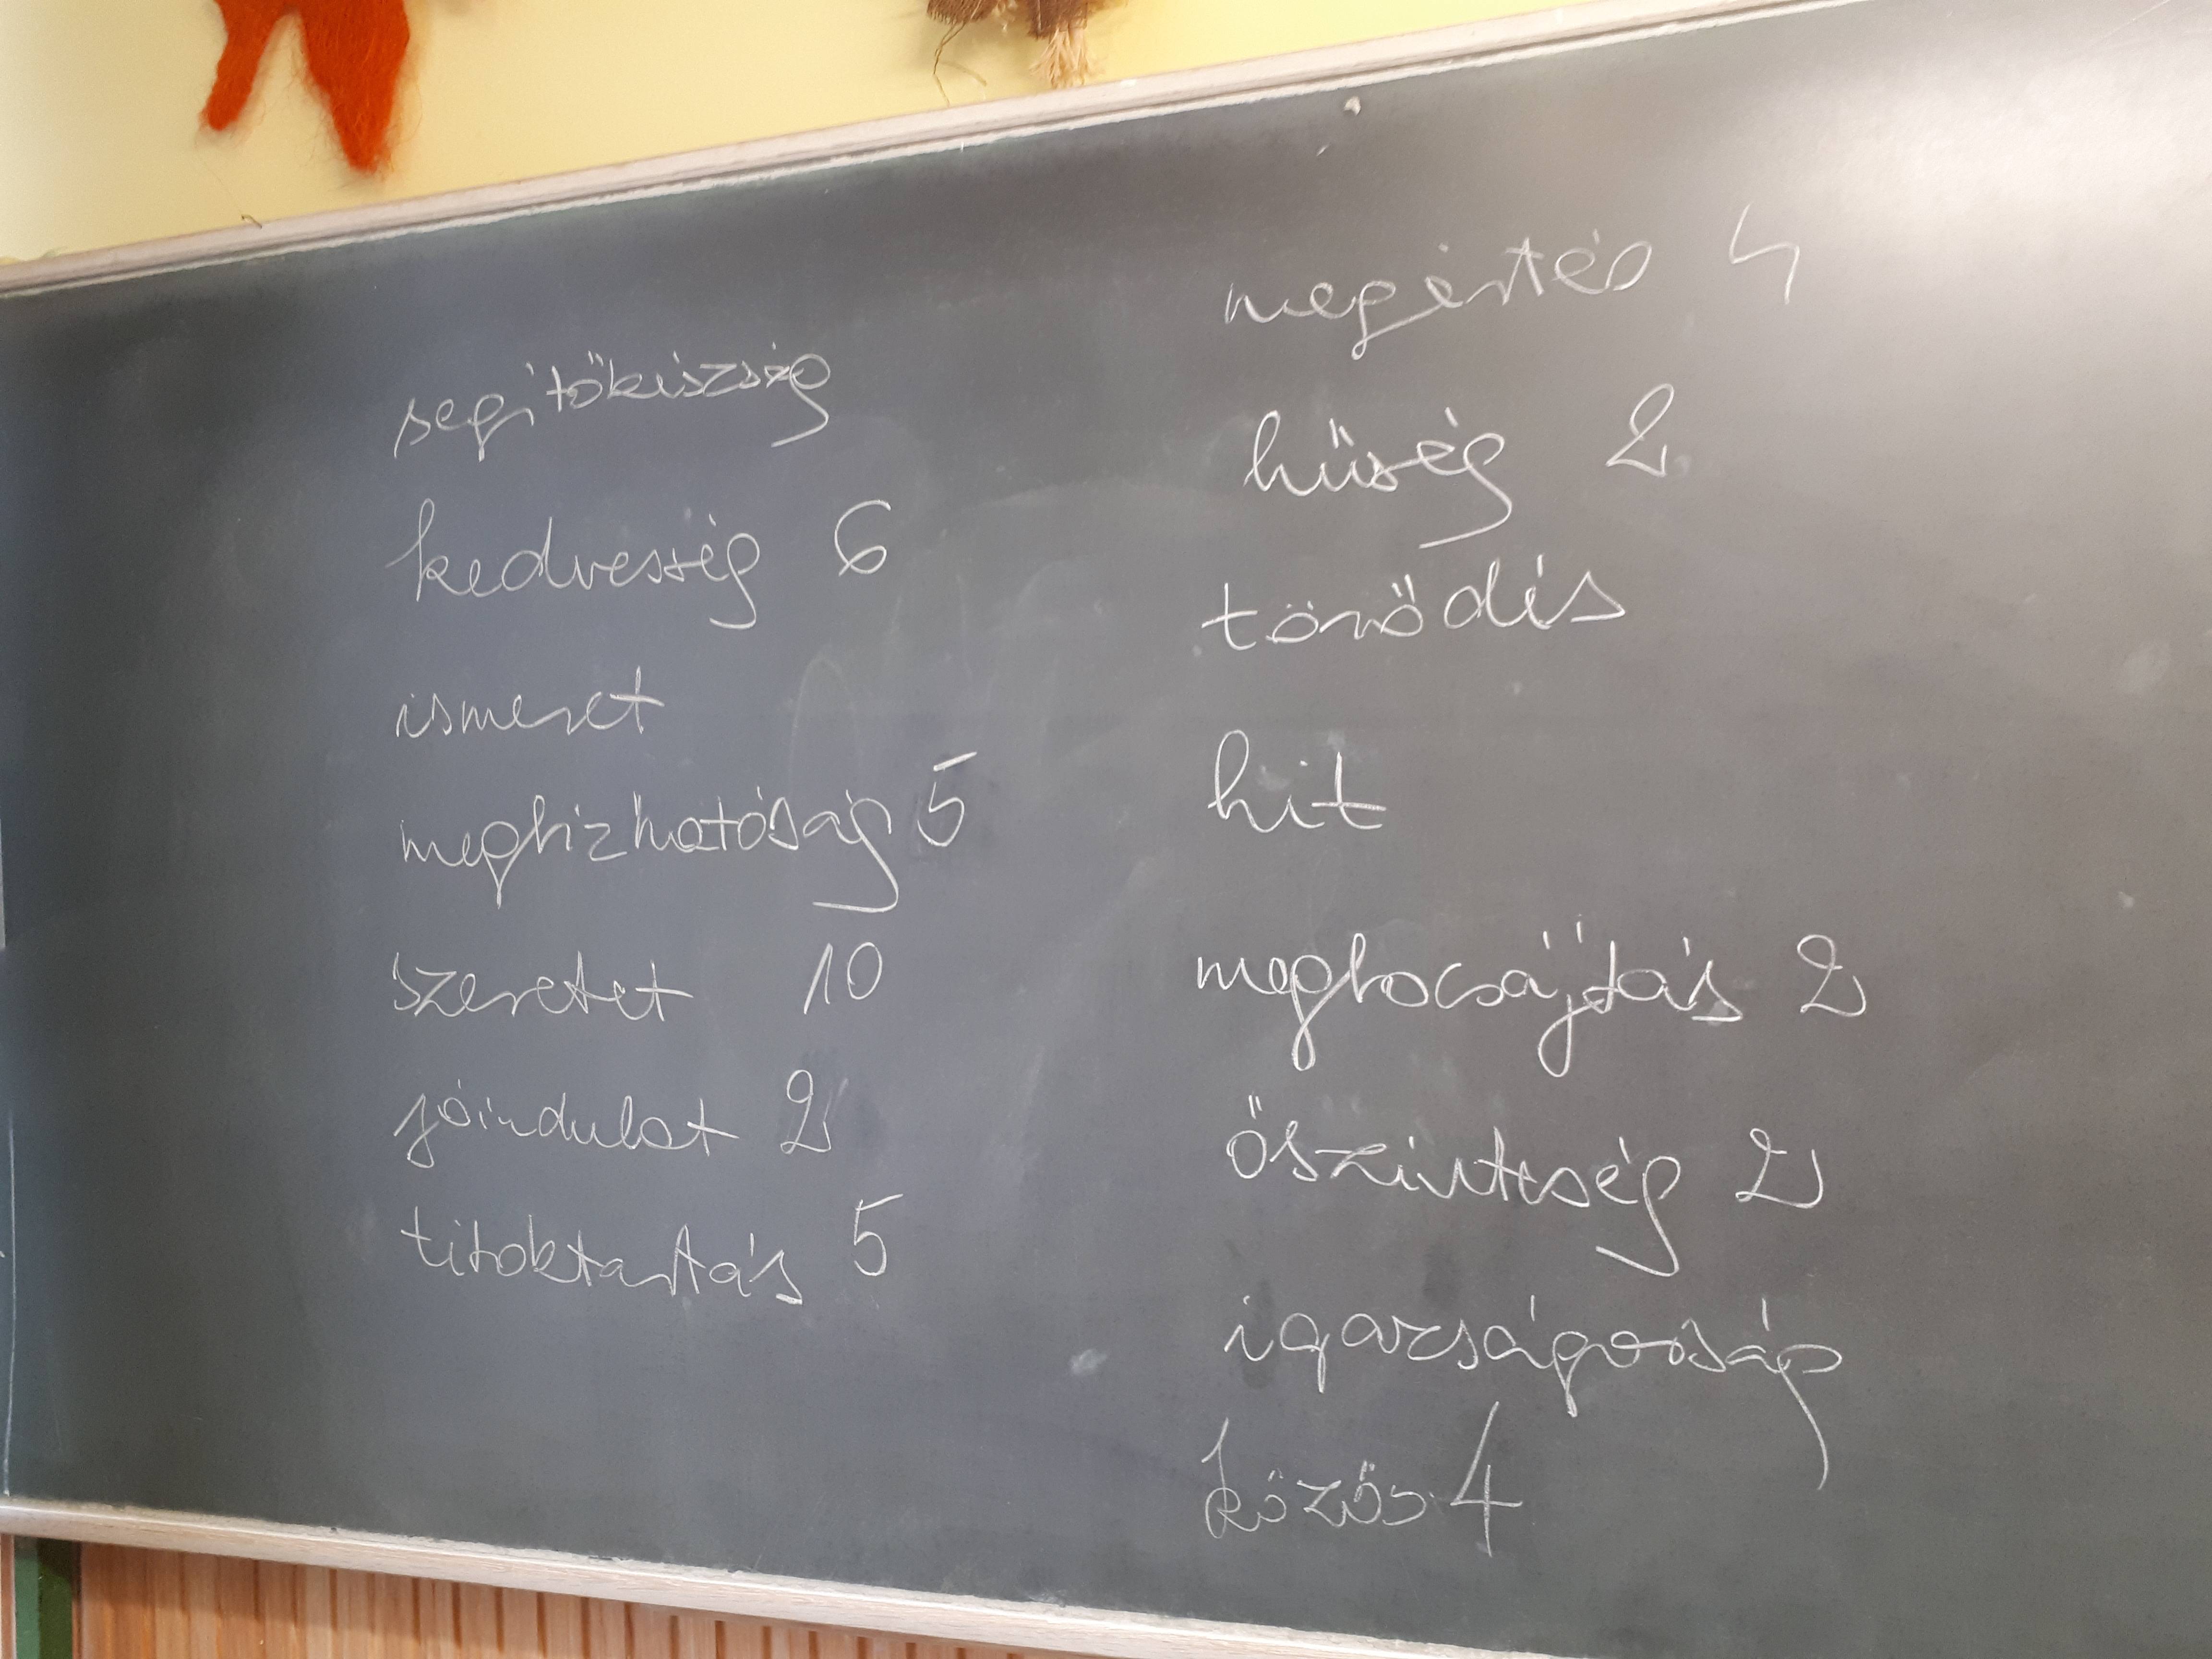 segítőkészség
kedvesség 6
ismeret
megbízhatóság 5
szeretet 10
jóindulat 2
titoktartás 5
megértés 4
hűség 2
törődés
hit
megbocsájtás 2
őszinteség 2
igazságosság
közös 4